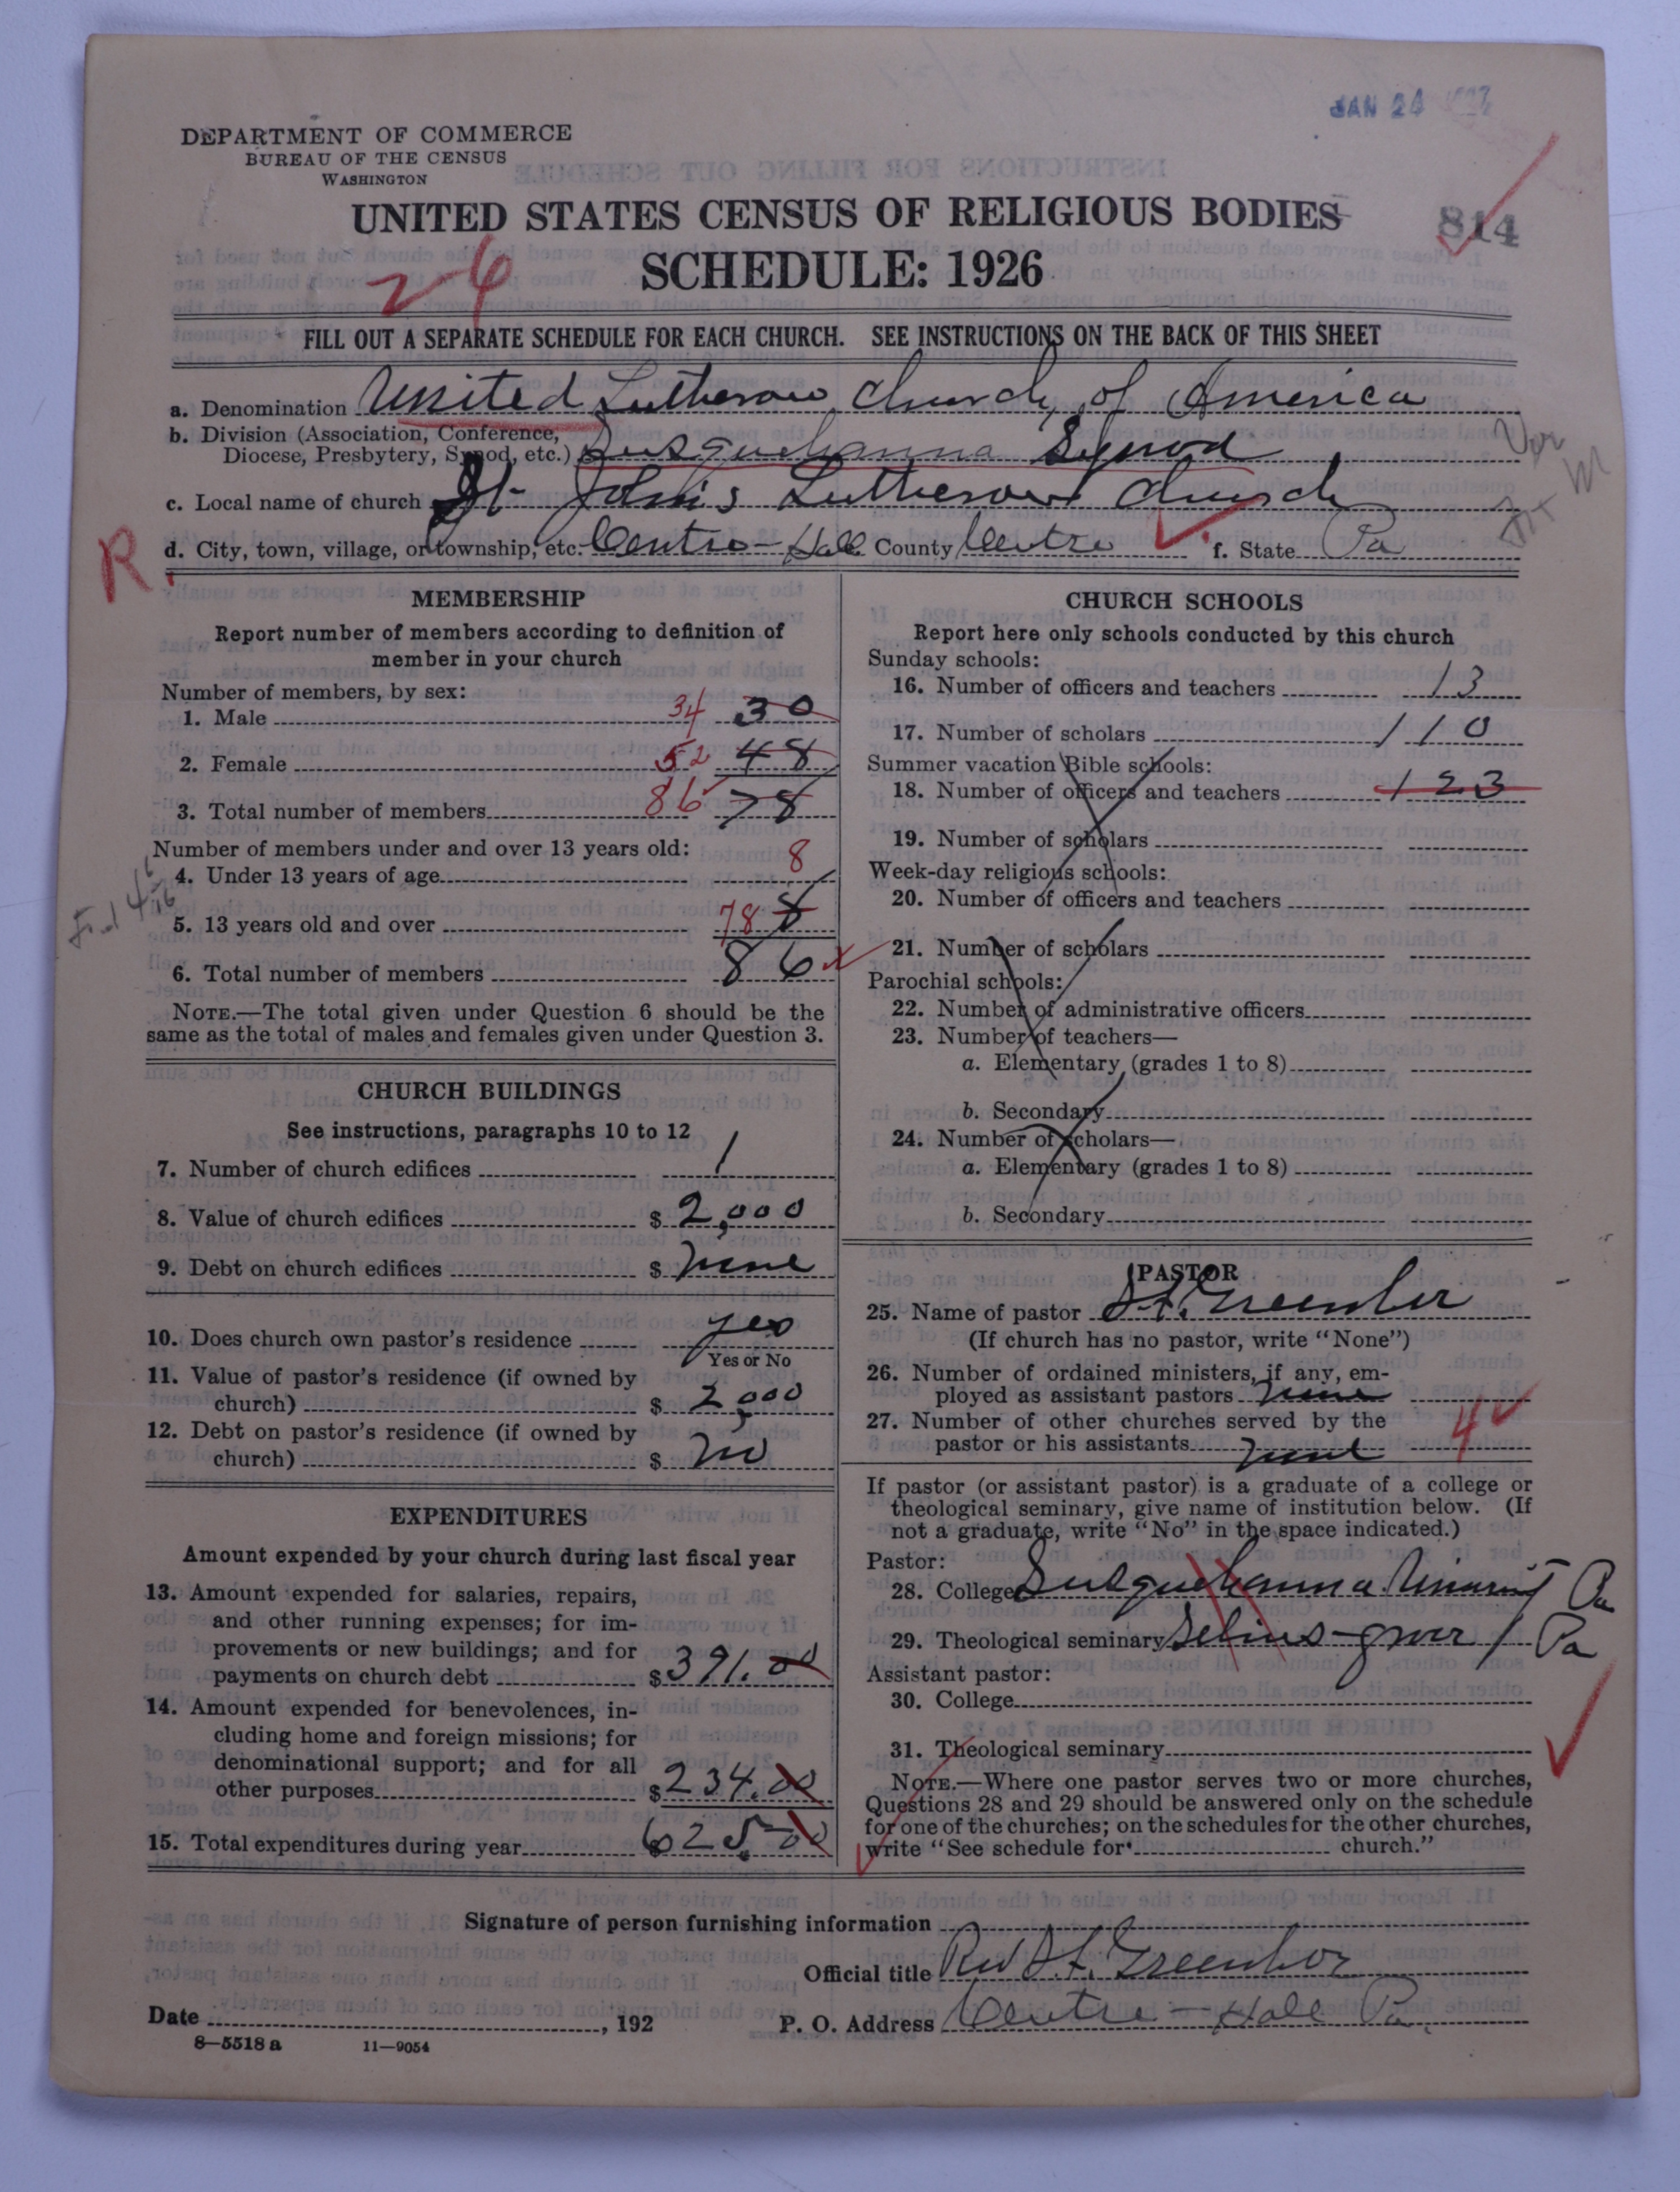 JAN 24
DEPARTMENT OF COMMERCE
BUREAU OF THE CENSUS
WASHINGTON
UNITED STATES CENSUS OF RELIGIOUS BODIES
814
SCHEDULE: 1926
FILL OUT A SEPARATE SCHEDULE FOR EACH CHURCH. SEE INSTRUCTIONS ON THE BACK OF THIS SHEET
a. Denomination United Lutheran Church of America
b. Division (Association, Conference,
Diocese, Presbytery, Synod, etc.) Susquehanna Synod
c. Local name of church St John's Lutheran Church
R. d. City, town, village, or township, etc. Centre-Hall County Centre f. State Pa
MEMBERSHIP
Report number of members according to definition of
member in your church
Number of members, by sex:
1. Male 34 30
2. Female 52 48
3. Total number of members 86 78
Number of members under and over 13 years old:
4. Under 13 years of age 8
5. 13 years old and over 78 8
6. Total number of members 86
NOTE.—The total given under Question 6 should be the
same as the total of males and females given under Question 3.
CHURCH BUILDINGS
See instructions, paragraphs 10 to 12
7. Number of church edifices 1
8. Value of church edifices $ 2,000
9. Debt on church edifices $ none
10. Does church own pastor's residence yes
Yes or No
11. Value of pastor's residence (if owned by
church) $ 2,000
12. Debt on pastor's residence (if owned by
church) $ no
EXPENDITURES
Amount expended by your church during last fiscal year
13. Amount expended for salaries, repairs,
and other running expenses; for im-
provements or new buildings; and for
payments on church debt $ 391.00
14. Amount expended for benevolences, in-
cluding home and foreign missions; for
denominational support; and for all
other purposes $ 234.00
15. Total expenditures during year 625.00
CHURCH SCHOOLS
Report here only schools conducted by this church
Sunday schools:
16. Number of officers and teachers 13
17. Number of scholars 110
Summer vacation Bible schools:
18. Number of officers and teachers 123
19. Number of scholars
Week-day religious schools:
20. Number of officers and teachers
21. Number of scholars
Parochial schools:
22. Number of administrative officers
23. Number of teachers—
a. Elementary (grades 1 to 8)
b. Secondary
24. Number of scholars—
a. Elementary (grades 1 to 8)
b. Secondary
PASTOR
25. Name of pastor
(If church has no pastor, write "None")
26. Number of ordained ministers, if any, em-
ployed as assistant pastors none
27. Number of other churches served by the
pastor or his assistants none 4
If pastor (or assistant pastor) is a graduate of a college or
theological seminary, give name of institution below. (If
not a graduate, write "No" in the space indicated.)
Pastor:
28. College Susquehanna Pa
29. Theological seminary Pa
Assistant pastor:
30. College
31. Theological seminary
NOTE.—Where one pastor serves two or more churches,
Questions 28 and 29 should be answered only on the schedule
for one of the churches; on the schedules for the other churches,
write "See schedule for church."
Signature of person furnishing information
Official title Rev
Date , 192
P. O. Address Centre-Hall Pa.
8—5518 a 11—9054